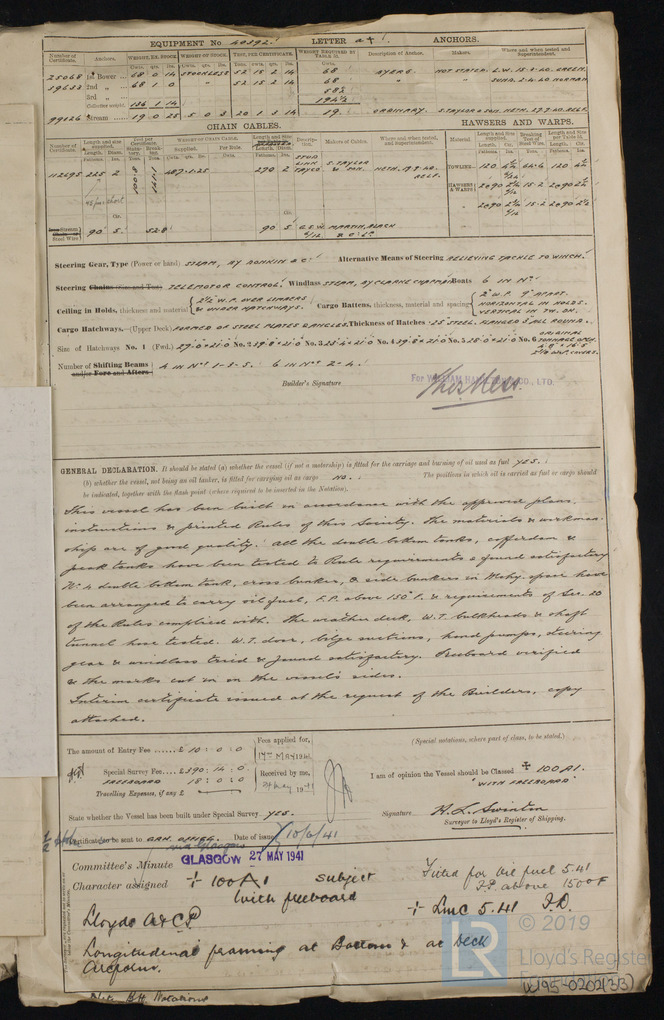 EQUIPMENT No. 40392. LETTER a † ANCHORS.
Number of Certificate. Anchors. WEIGHT, EX. STOCK WEIGHT OF STOCK. TEST, PER CERTIFICATE. WEIGHT REQUIRED BY TABLE 31. Description of Anchor. Makers. Where and when tested, and Superintendent.
Cwts. qrs. lbs.
25068 1st Bower 68 0 14 STOCKLESS 52 15 2 14 68 BYERS. NOT STATED. L.W. 15.2.40 GREEN.
19632 2nd " 68 1 0 " 52 15 2 14 68 " "
3rd " 58½
Collective weight 136 1 14 194½
99026 Stream 19 0 25 5 0 3 20 1 3 14 19 ORDINARY. S. TAYLOR & SON. NETH. 27.9.40 RELF.
CHAIN CABLES. HAWSERS AND WARPS.
Number of Certificate. Length and size supplied. Test per Certificate. WEIGHT OF CHAIN CABLE. Supplied. Per Rule. Makers of Cables. Where and when tested, and Superintendent. Material Length and Size supplied. Breaking Test of Steel Wire. Length and Size per Table 31.
112695 225 2 100.8 141.1 487.1.25 290 2 STUD LINK S. TAYLOR & SON. NETH. 19.9.40. RELF.
TOWLINE 120 4½ 64.6 120 4½
HAWSERS & WARPS 2@90 2½ 15.2 2@90 2½
2@90 2½ 15.2 2@90 2½
Steel Wire 90 5 52.8 90 5 G.S.W. 6/12 MARTIN, BLACK & Co. Ld
Steering Gear, Type (Power or hand) STEAM, BY DONKIN & Co. Alternative Means of Steering RELIEVING TACKLE TO WINCH.
Steering Chains (Size and Test) TELEMOTOR CONTROL. Windlass STEAM, BY CLARKE CHAPMAN Boats 6 IN No.
Ceiling in Holds, thickness and material 2½ W.P. OVER LIMBERS & UNDER HATCHWAYS. Cargo Battens, thickness, material and spacing 2" W.P. 9" APART. HORIZONTAL IN HOLDS. VERTICAL IN TW. DK.
Cargo Hatchways.—(Upper Deck) FORMED OF STEEL PLATES & ANGLES. Thickness of Hatches .25 STEEL. FLANGED 3" ALL ROUND.
Size of Hatchways No. 1 (Fwd.) 29.0 × 21.0 No. 2 39.8 × 21.0 No. 3 25.4 × 21.0 No. 4 39.8 × 21.0 No. 5 28.0 × 21.0 No. 6 ORIGINAL TONNAGE OPEN. 4'.8" × 16.5 2½ W.P. COVERS.
Number of Shifting Beams and/or Fore and Afters 4 IN No 1-3-5. 6 IN No 2-4.
Builder's Signature For WILLIAM HAMILTON & CO., LTD.
GENERAL DECLARATION. It should be stated (a) whether the vessel (if not a motorship) is fitted for the carriage and burning of oil used as fuel YES.
(b) whether the vessel, not being an oil tanker, is fitted for carrying oil as cargo NO. The positions in which oil is carried as fuel or cargo should
be indicated, together with the flash point (where required to be inserted in the Notation).
This vessel has been built in accordance with the approved plans,
instructions & printed Rules of this Society. The materials & workman-
ship are of good quality. All the double bottom tanks, cofferdam &
peak tanks have been tested to Rule requirements & found satisfactory
No 4 double bottom tank, cross bunker, & side bunkers in Mchy. space have
been arranged to carry oil fuel, F.P. above 150° F. & requirements of Sec. 20
of the Rules complied with. The weather deck, W.T. bulkheads & shaft
tunnel hose tested. W.T. door, bilge suctions, hand pumps, steering
gear & windlass tried & found satisfactory. Freeboard verified
& the marks cut in on the vessel's sides.
Interim certificate issued at the request of the Builders, copy
attached.
The amount of Entry Fee ......£ 10 : 0 : 0 Fees applied for, (Special notations, where part of class, to be stated.)
Special Survey Fee....£390 : 14 : 0 Received by me, I am of opinion the Vessel should be Classed ✠ 100 A1.
FREEBOARD 18 : 0 : 0 "WITH FREEBOARD"
Travelling Expenses, if any £
State whether the Vessel has been built under Special Survey YES. Signature R. L. Swinton
Surveyor to Lloyd's Register of Shipping.
Certificate to be sent to GRK. OFFICE. Date of issue 10/6/41
via Glasgow
Committee's Minute GLASGOW 27 MAY 1941
Character assigned ✠ 100 A 1 subject Fitted for oil fuel 5.41
With freeboard F.P. above 150°F
Lloyds A & C.P. ✠ LMC 5.41 F.D.
Longitudinal framing at Bottom & at Deck
© 2019
LR Lloyd's Register
W195-0202(3/3)